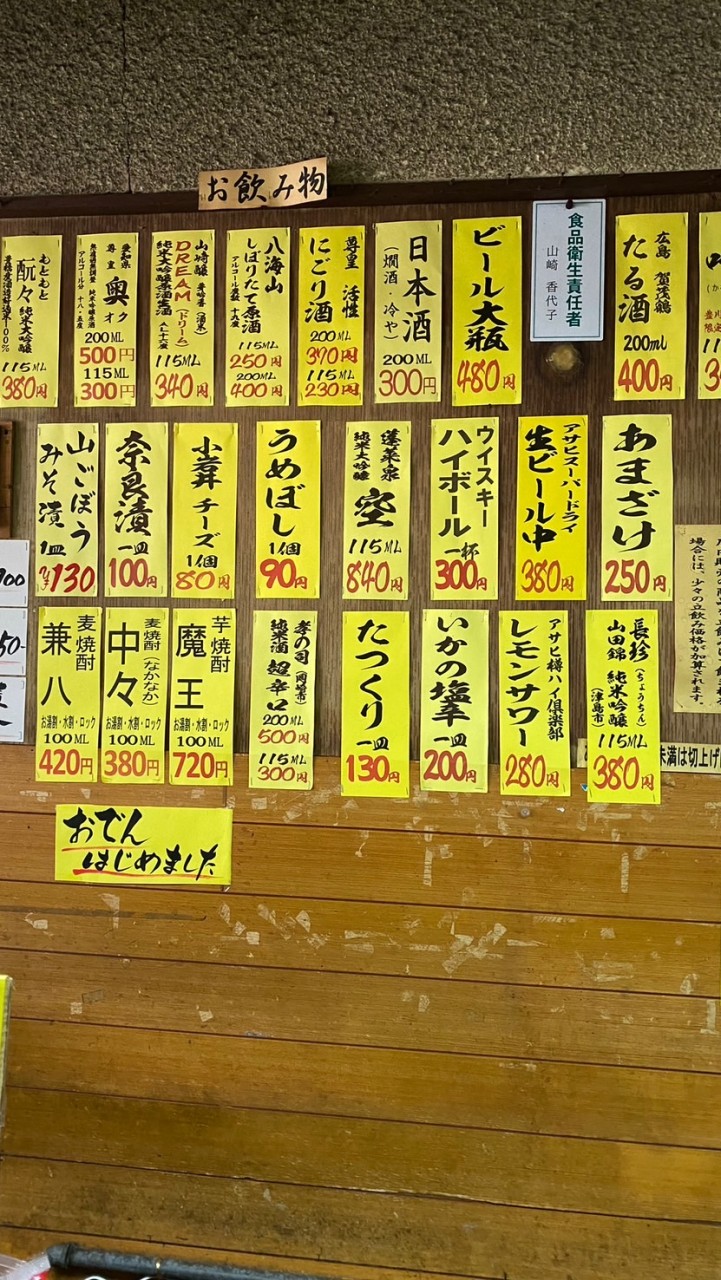 お飲み物
広島 賀茂鶴
たる酒
200ml
400円
食品衛生責任者
山崎 香代子
ビール大瓶
480円
日本酒
(燗酒・冷や)
200ML
300円
尊皇 活性
にごり酒
200ML
370円
115ML
230円
八海山
しぼりたて原酒
アルコール度数 十八度
115ML
250円
200ML
400円
山崎醸 夢吟香(酒米)
DREAM(ドリーム)
115ML
340円
愛知県
尊皇 奥 オク
200ML
500円
115ML
300円
もともと
酛々 純米大吟醸
115ML
380円
あまざけ
250円
アサヒスーパードライ
生ビール中
380円
ウイスキー
ハイボール
一杯
300円
蓬莱泉
純米大吟醸 空
115ML
840円
うめぼし
1個
90円
小岩井 チーズ
1個
80円
奈良漬
一皿
100円
山ごぼう
みそ漬 1皿
130
長珍(ちょうちん)
山田錦 純米吟醸
(津島市)
115ML
380円
アサヒ樽ハイ倶楽部
レモンサワー
280円
いかの塩辛
一皿
200円
たつくり
一皿
130円
孝の司(岡崎市)
純米酒 超辛口
200ML
500円
115ML
300円
芋焼酎
魔王
お湯割・水割・ロック
100ML
720円
麦焼酎(なかなか)
中々
お湯割・水割・ロック
100ML
380円
麦焼酎
兼八
お湯割・水割・ロック
100ML
420円
場合には、少々の立飲み価格が加算されます。
未満は切上げ
おでん
はじめました